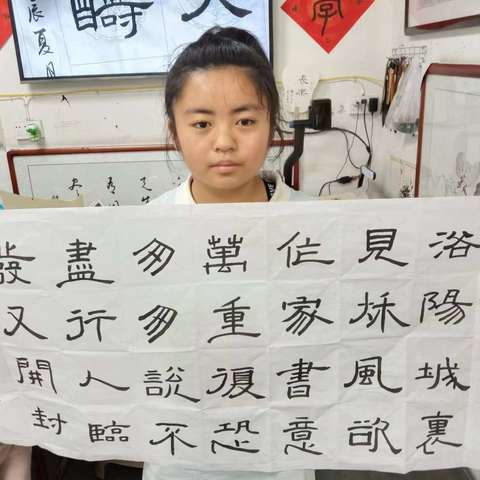 辰夏月
洛陽城裏
見秋風欲
作家書意
萬重復恐
匆匆說不
盡行人臨
發又開封